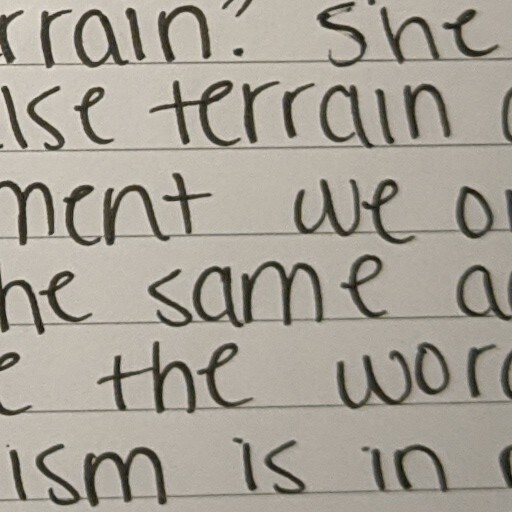 rrain." She
lse terrain
ment we o
he same a
e the wor
ism is in